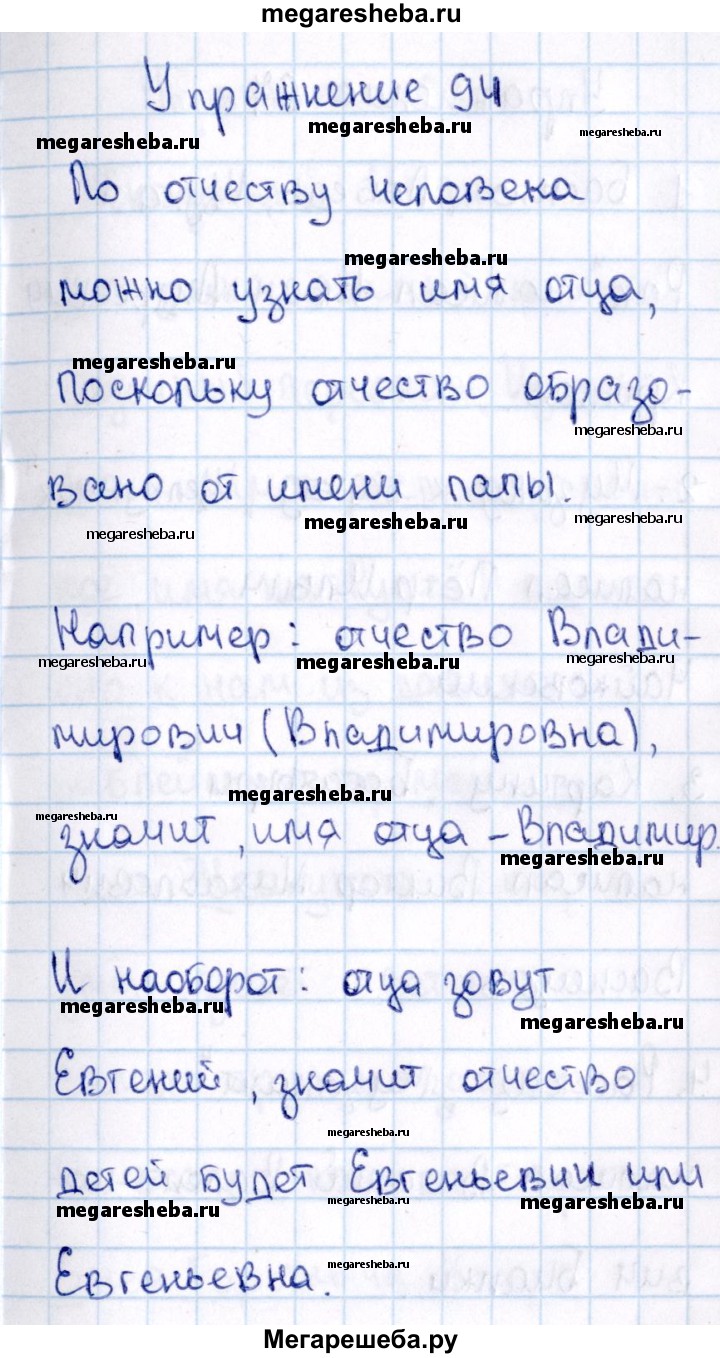 megaresheba.ru
Упражнение 94
megaresheba.ru megaresheba.ru megaresheba.ru
По отчеству человека
megaresheba.ru
можно узнать имя отца,
megaresheba.ru
поскольку отчество образо-
megaresheba.ru
вано от имени папы.
megaresheba.ru megaresheba.ru megaresheba.ru
Например: отчество Влади-
megaresheba.ru megaresheba.ru megaresheba.ru
мирович (Владимировна),
megaresheba.ru megaresheba.ru
значит, имя отца - Владимир.
megaresheba.ru
И наоборот: отца зовут
megaresheba.ru megaresheba.ru
Евгений, значит отчество
megaresheba.ru
детей будет Евгеньевич или
megaresheba.ru megaresheba.ru megaresheba.ru
Евгеньевна.
megaresheba.ru
Мегарешеба.ру